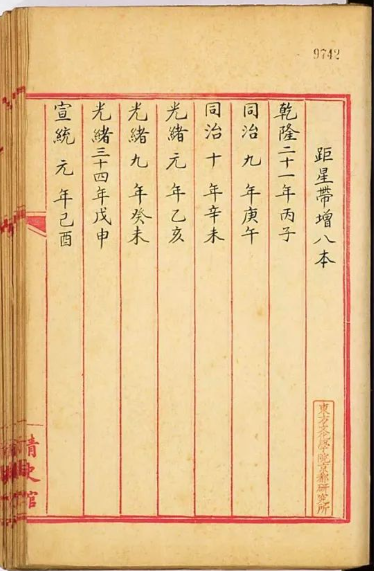 9742
距星帶增八本
乾隆二十一年丙子
同治九年庚午
同治十年辛未
光緒元年乙亥
光緒九年癸未
光緒三十四年戊申
宣統元年己酉
東方文化學院京都研究所
清史館